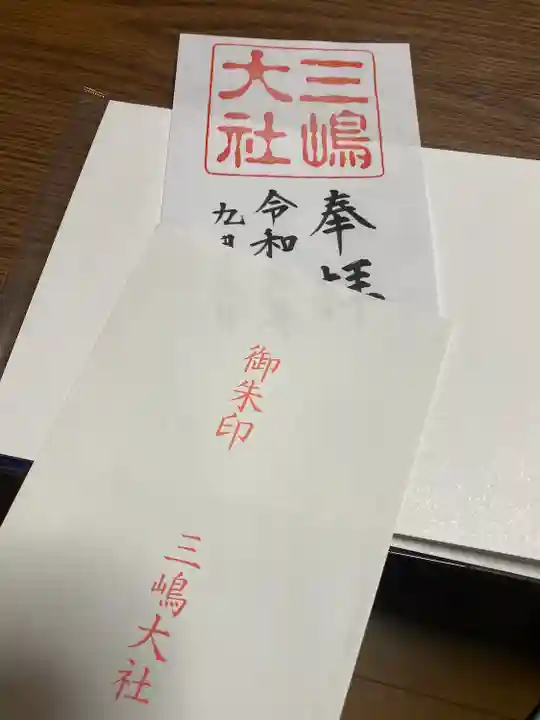 三嶋
大社
奉
令和
九
御朱印
三嶋大社